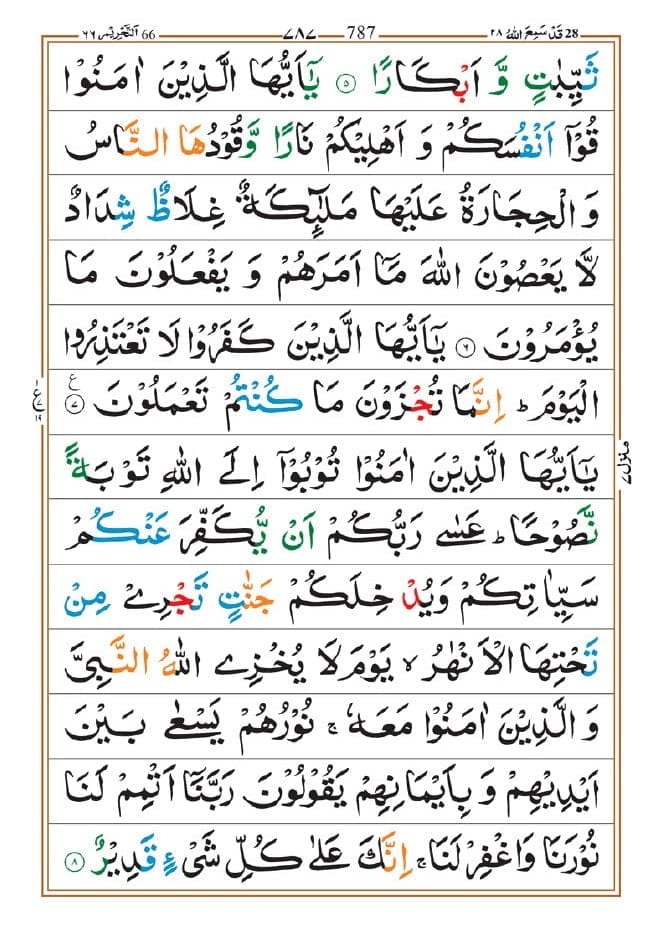 28 قَدْ سَمِعَ اللّٰهُ ٢٨ 787 ٧٨٧ 66 اَلتَّحْرِيْم ٦٦
ثَيِّبٰتٍ وَّ اَبْكَارًا ۝۵ يٰۤاَيُّهَا الَّذِيْنَ اٰمَنُوْا
قُوْۤا اَنْفُسَكُمْ وَ اَهْلِيْكُمْ نَارًا وَّقُوْدُهَا النَّاسُ
وَ الْحِجَارَةُ عَلَيْهَا مَلٰٓئِكَةٌ غِلَاظٌ شِدَادٌ
لَّا يَعْصُوْنَ اللّٰهَ مَاۤ اَمَرَهُمْ وَ يَفْعَلُوْنَ مَا
يُؤْمَرُوْنَ ۝۶ يٰۤاَيُّهَا الَّذِيْنَ كَفَرُوْا لَا تَعْتَذِرُوا
الْيَوْمَ ؕ اِنَّمَا تُجْزَوْنَ مَا كُنْتُمْ تَعْمَلُوْنَ ۝۷ ع
يٰۤاَيُّهَا الَّذِيْنَ اٰمَنُوْا تُوْبُوْۤا اِلَى اللّٰهِ تَوْبَةً
نَّصُوْحًا ؕ عَسٰى رَبُّكُمْ اَنْ يُّكَفِّرَ عَنْكُمْ
سَيِّاٰتِكُمْ وَيُدْخِلَكُمْ جَنّٰتٍ تَجْرِيْ مِنْ
تَحْتِهَا الْاَنْهٰرُ ۙ يَوْمَ لَا يُخْزِي اللّٰهُ النَّبِيَّ
وَ الَّذِيْنَ اٰمَنُوْا مَعَهٗ ۚ نُوْرُهُمْ يَسْعٰى بَيْنَ
اَيْدِيْهِمْ وَ بِاَيْمَانِهِمْ يَقُوْلُوْنَ رَبَّنَاۤ اَتْمِمْ لَنَا
نُوْرَنَا وَاغْفِرْ لَنَا ۚ اِنَّكَ عَلٰى كُلِّ شَيْءٍ قَدِيْرٌ ۝۸
منزل ٧